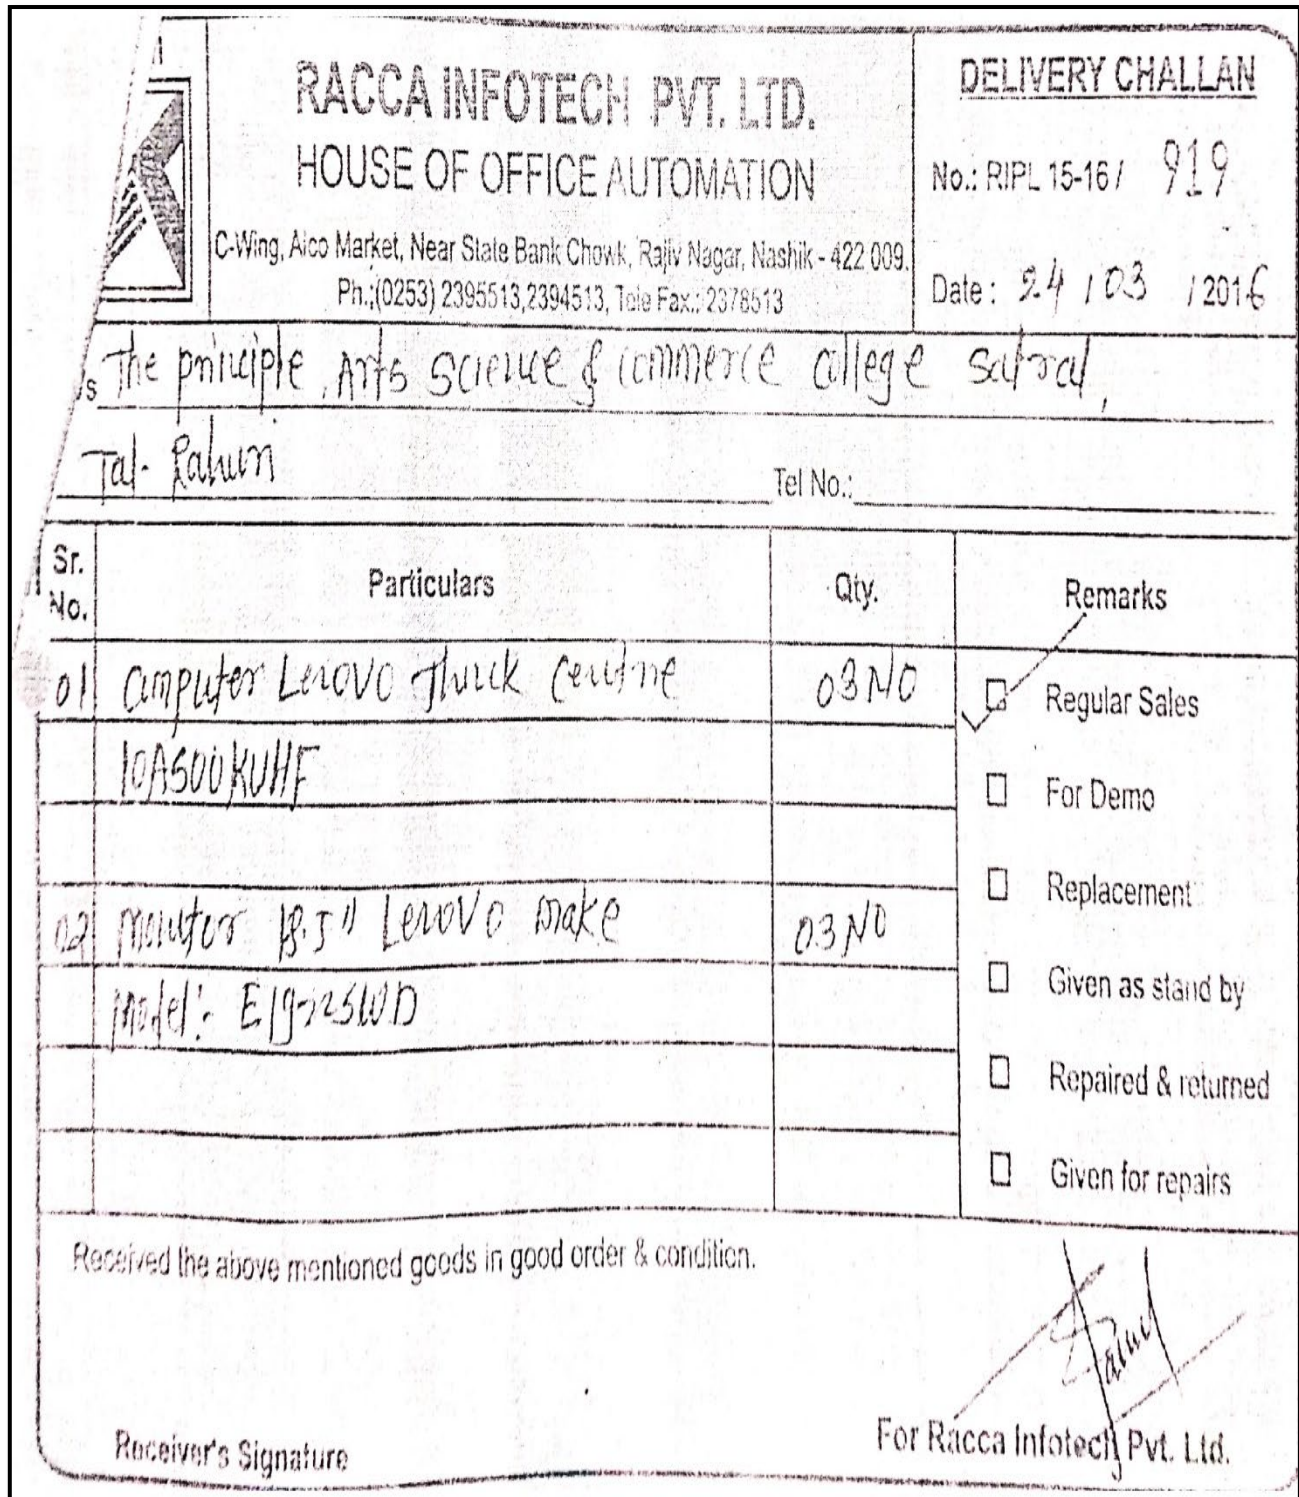 RACCA INFOTECH PVT. LTD.
HOUSE OF OFFICE AUTOMATION
C-Wing, Aico Market, Near State Bank Chowk, Rajiv Nagar, Nashik - 422 009.
Ph.:(0253) 2395513,2394513, Tele Fax.: 2378513
DELIVERY CHALLAN
No.: RIPL 15-16 / 919
Date : 24 / 03 / 2016
/s The principle, Arts Science & Commerce College Satral,
Tal- Rahuri
Tel No.:
Sr. No. Particulars Qty. Remarks
01 Computer Lenovo Think Centre 03 NO
10AS00KUHF
02 Monitor 18.5" Lenovo make 03 NO
Model:-
Regular Sales
For Demo
Replacement
Given as stand by
Repaired & returned
Given for repairs
Received the above mentioned goods in good order & condition.
Receiver's Signature
For Racca Infotech Pvt. Ltd.